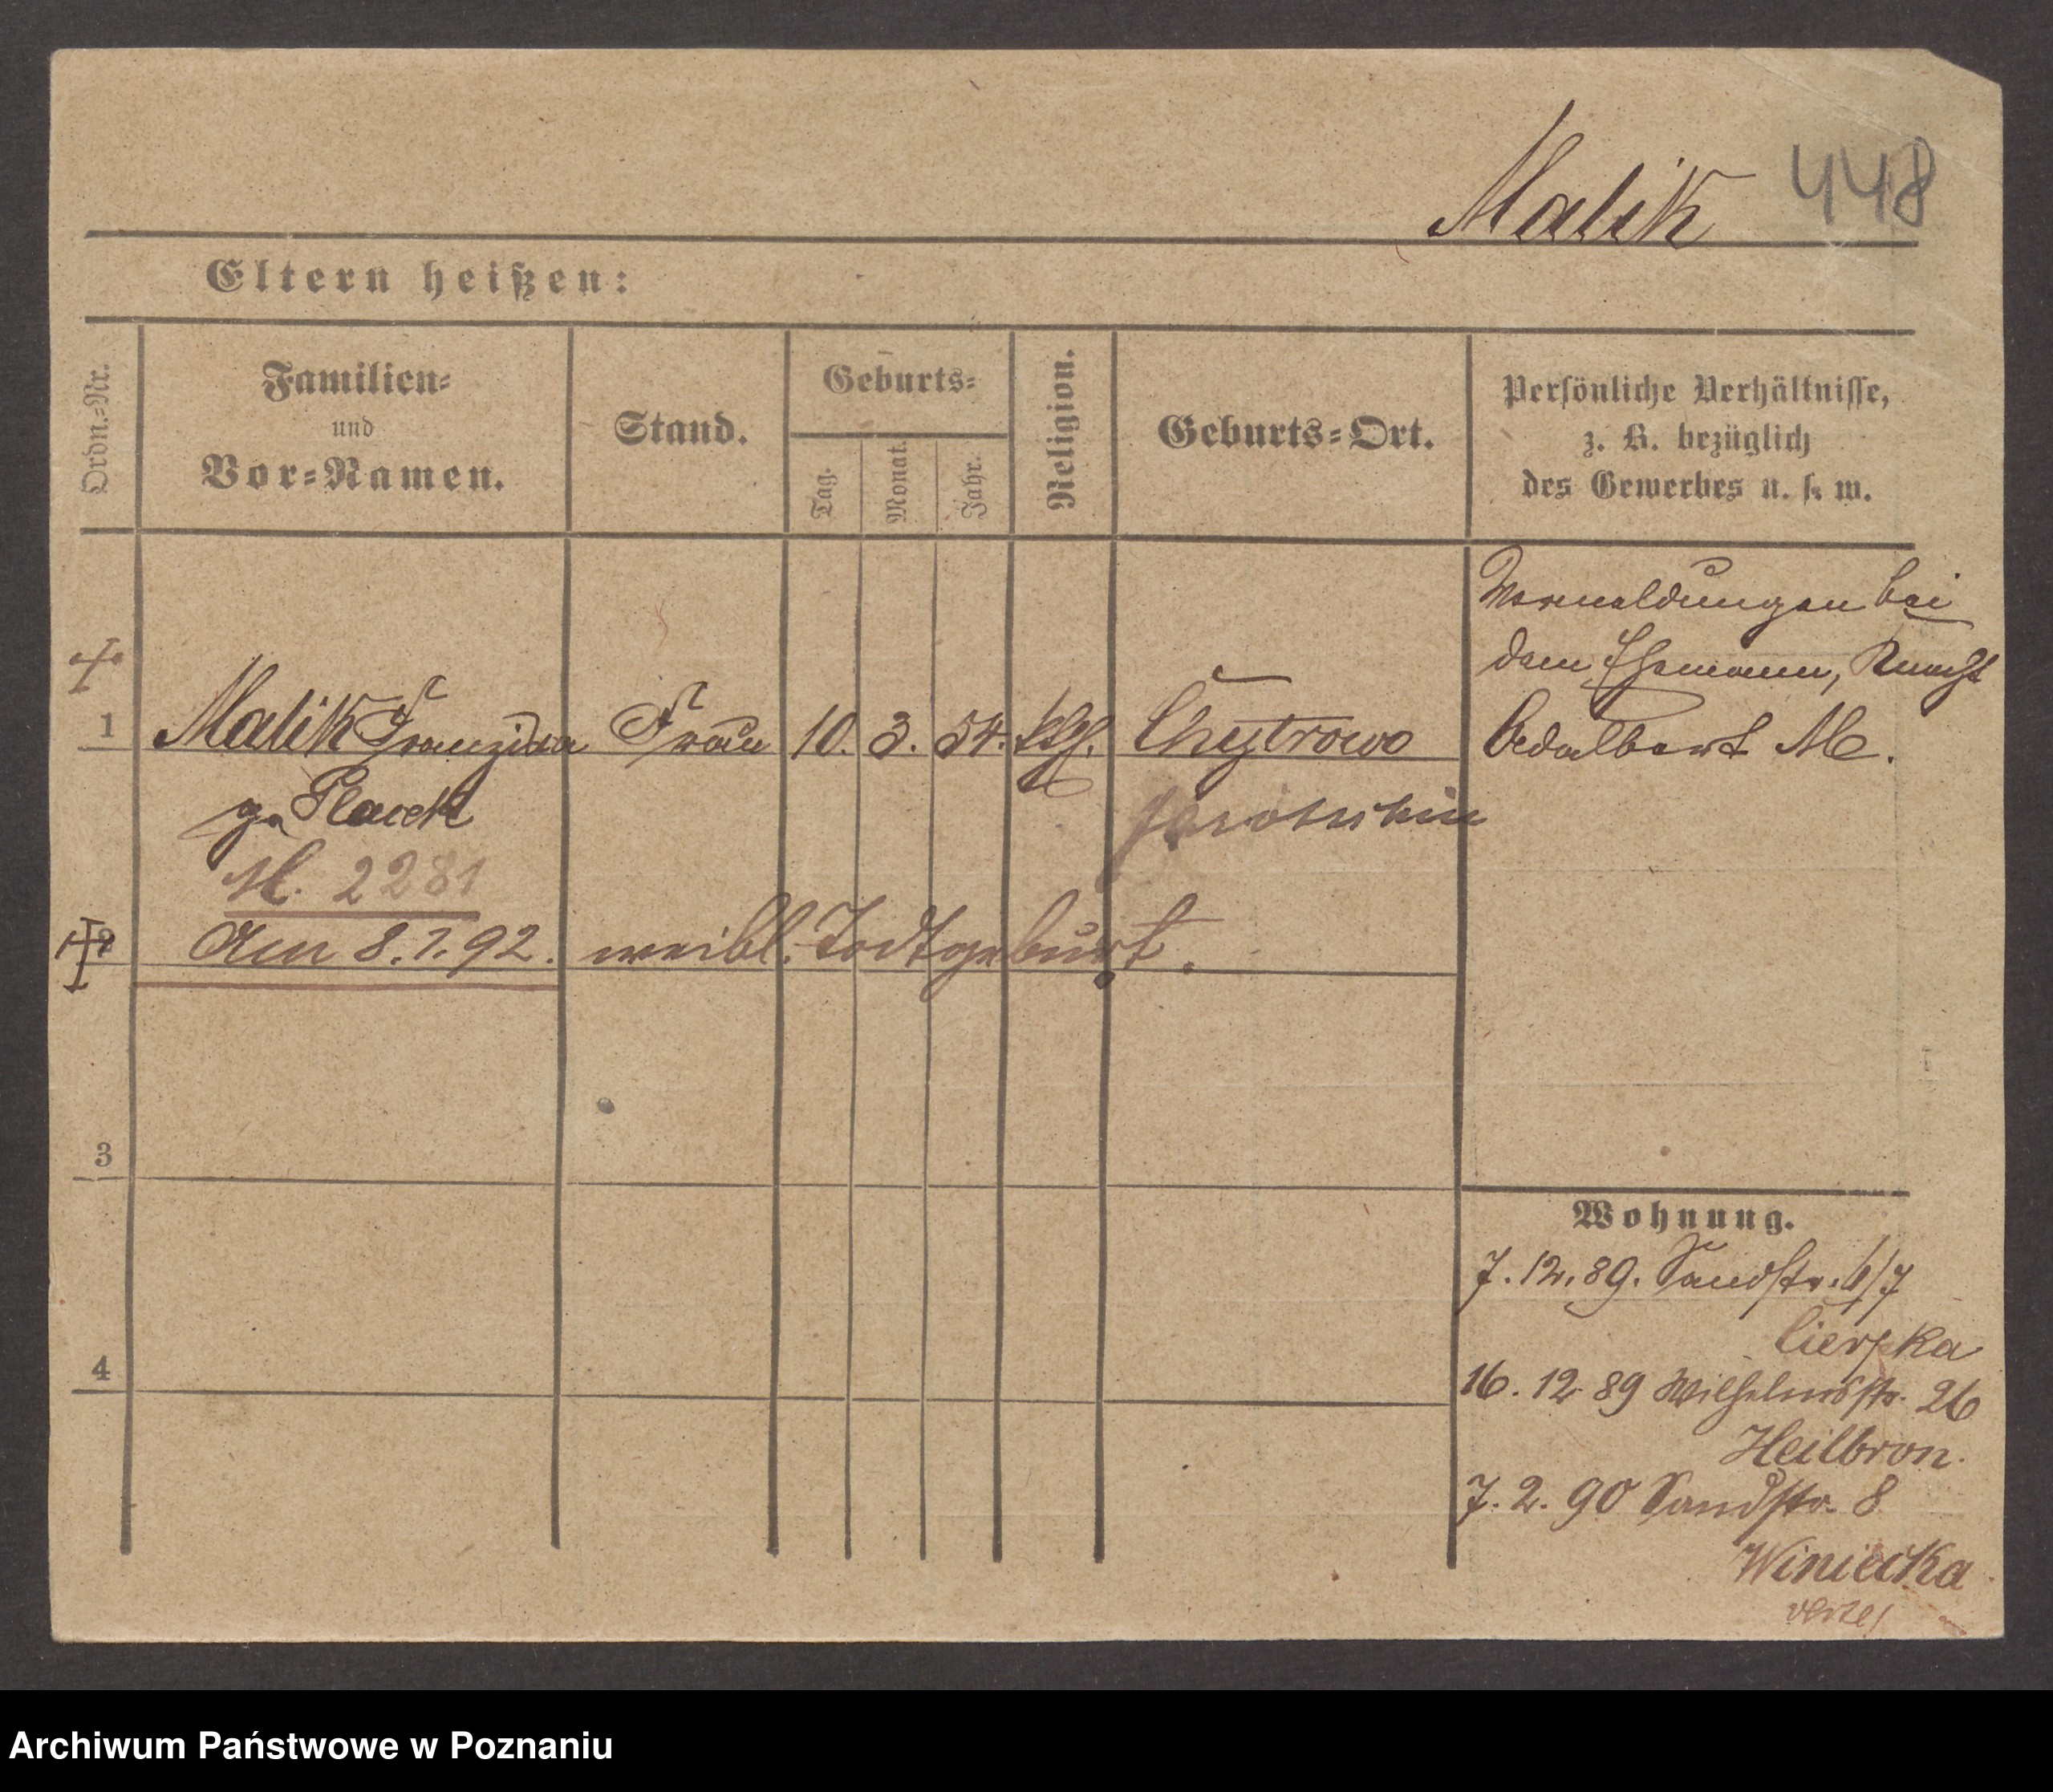 Malik 448
Eltern heißen:
Ordn.-Nr.
Familien-
und
Vor-Namen.
Stand.
Geburts-
Tag.
Monat.
Jahr.
Religion.
Geburts-Ort.
Persönliche Verhältnisse,
z. B. bezüglich
des Gewerbes u. s. w.
Vormeldungen bei
dem Ehemann, Knecht
Adalbert M.
1 Malik Franziska Frau 10. 3. 54. kth. Chytrowo
ge Placek Jarotschin
M. 2281
2 Am 8.7.92. weibl. Todtgeburt.
3
4
Wohnung.
7. 12. 89. Sandstr. 6/7
Cierpka
16. 12 89 Wilhelmsstr. 26
Heilbron.
7. 2. 90 Sandstr. 8
Winiecka
Archiwum Państwowe w Poznaniu